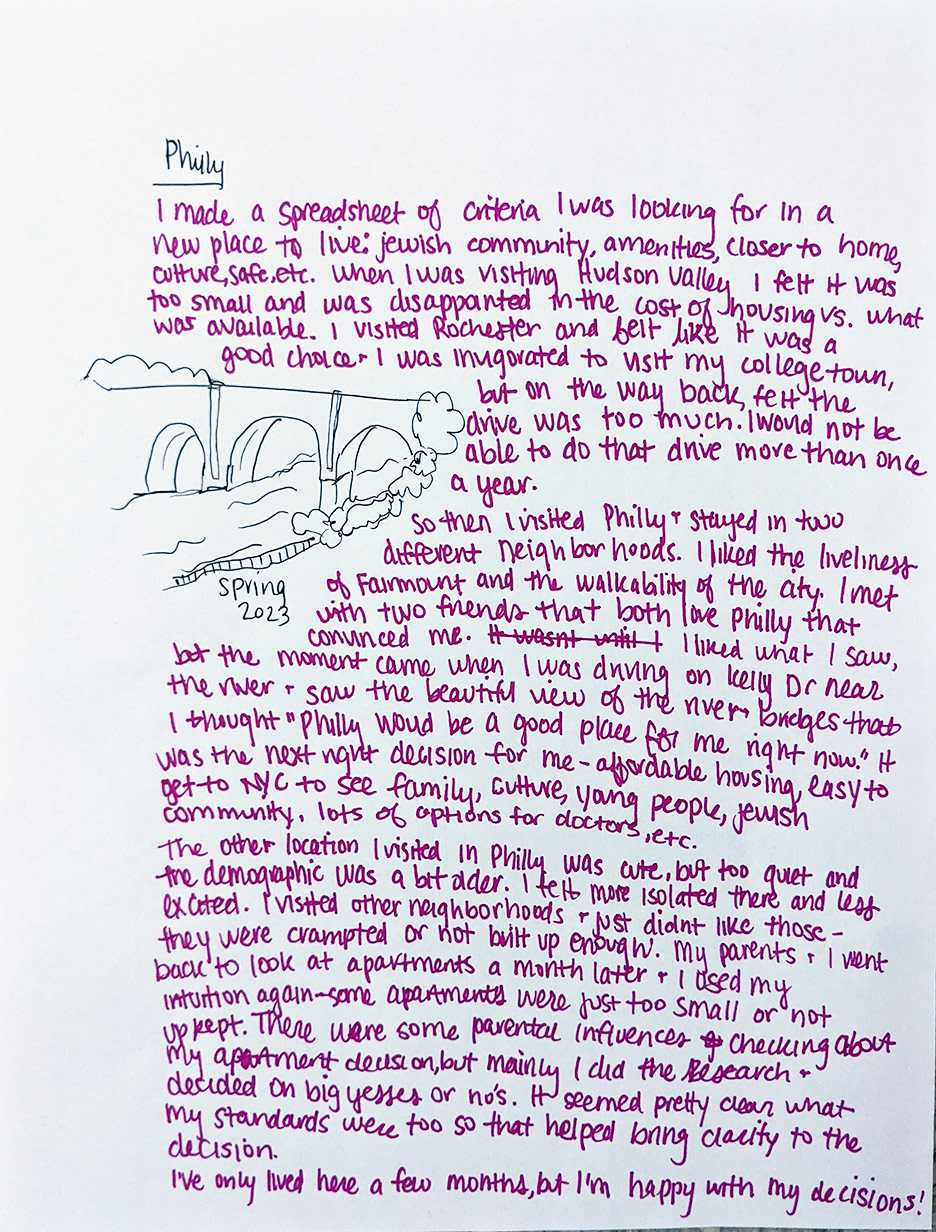 Philly
I made a spreadsheet of criteria I was looking for in a
new place to live: jewish community, amenities, closer to home,
culture, safe, etc. When I was visiting Hudson Valley I felt it was
too small and was disappointed in the cost of housing vs. what
was available. I visited Rochester and felt like it was a
good choice. I was invigorated to visit my college town,
but on the way back, felt the
drive was too much. I would not be
able to do that drive more than once
a year.
So then I visited Philly + stayed in two
different neighborhoods. I liked the liveliness
of Fairmount and the walkability of the city. I met
with two friends that both love philly that
convinced me. It wasnt until I I liked what I saw,
but the moment came when I was driving on Kelly Dr near
the river + saw the beautiful view of the river + bridges that
I thought "Philly woud be a good place for me right now." It
was the next right decision for me - affordable housing, easy to
get to NYC to see family, culture, young people, jewish
community, lots of options for doctors, etc.
The other location I visited in Philly was cute, but too quiet and
the demographic was a bit older. I felt more isolated there and less
excited. I visited other neighborhoods + just didnt like those -
they were crampted or not built up enough. My parents + I went
back to look at apartments a month later + I used my
intuition again - some apartments were just too small or not
upkept. There were some parental influences + checking about
my apartment decision, but mainly I did the research +
decided on big yesses or no's. It seemed pretty clear what
my standards were too so that helped bring clarity to the
decision.
I've only lived here a few months, but I'm happy with my decisions!
spring
2023